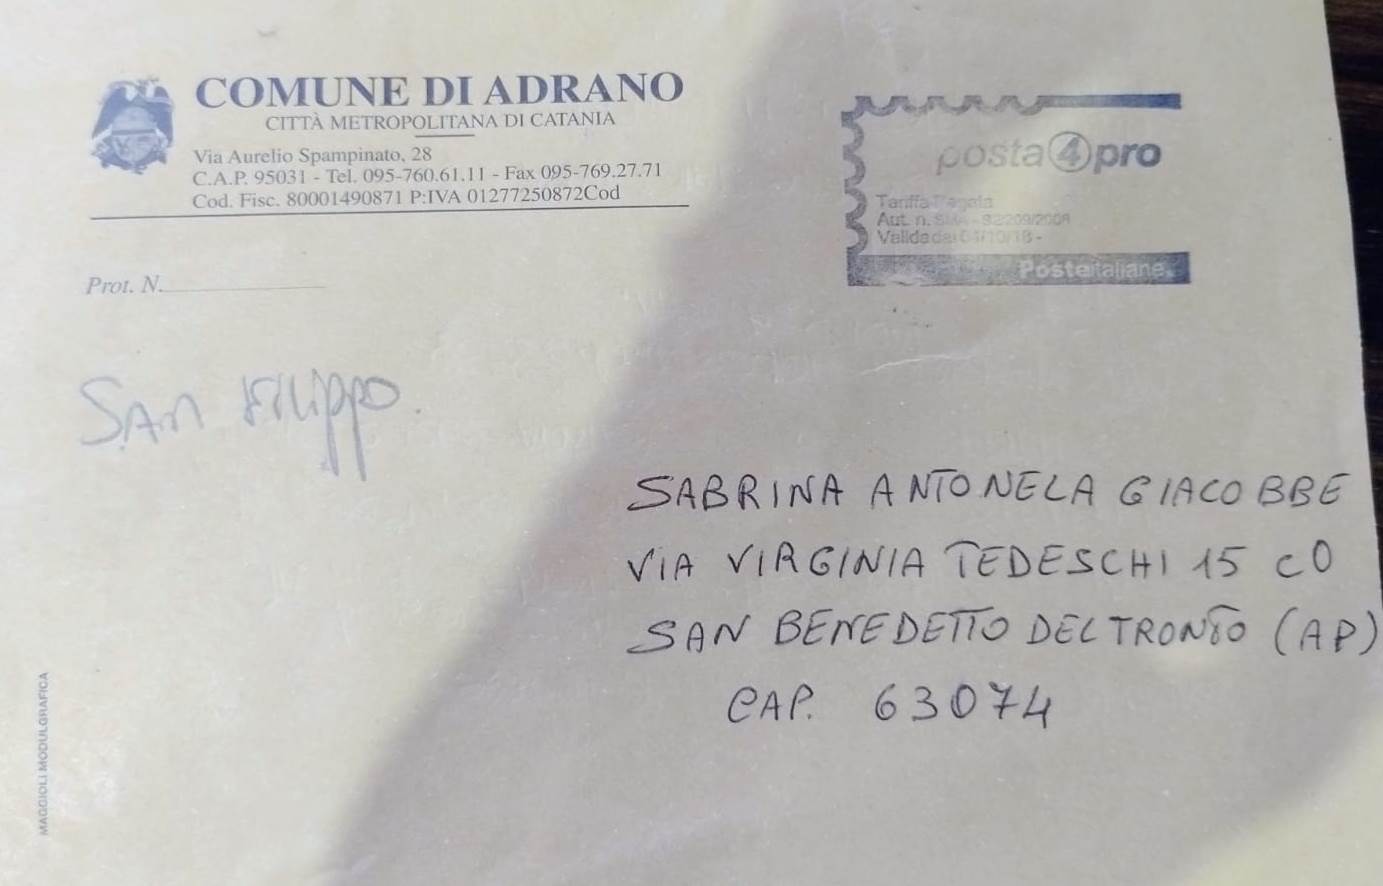 COMUNE DI ADRANO
CITTÀ METROPOLITANA DI CATANIA
Via Aurelio Spampinato, 28
C.A.P. 95031 - Tel. 095-760.61.11 - Fax 095-769.27.71
Cod. Fisc. 80001490871 P:IVA 01277250872Cod
posta4pro
Tariffa Pagata
Aut. n. 92/209/2009
Valida dal 04/10/18 -
Posteitaliane
Prot. N.
SAN FILIPPO.
SABRINA ANTONELA GIACOBBE
VIA VIRGINIA TEDESCHI 15 CO
SAN BENEDETTO DEL TRONTO (AP)
CAP. 63074
MAGGIOLI MODULGRAFICA